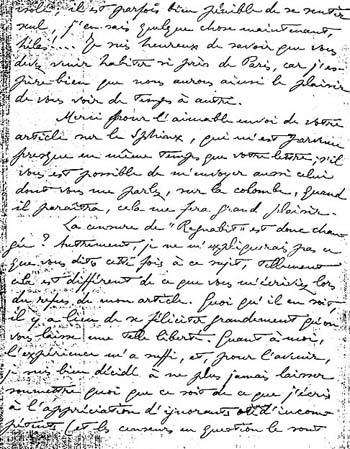 isolé; il est parfois bien pénible de se sentir
seul, j'en sais quelque chose maintenant,
hélas.... Je suis heureux de savoir que vous
allez venir habiter si près de Paris, car j'es-
père bien que nous aurons ainsi le plaisir
de vous voir de temps à autre.
Merci pour l'aimable envoi de votre
article sur le Sphinx, qui m'est parvenu
presque en même temps que votre lettre; s'il
vous est possible de m'envoyer aussi celui
dont vous me parlez, sur la colombe, quand
il paraîtra, cela me fera grand plaisir.
La censure de "Regnabit" est donc chan-
gée? Autrement, je ne m'expliquerais pas ce
que vous dites cette fois à ce sujet, tellement
cela est différent de ce que vous m'écriviez lors
du refus de mon article. Quoi qu'il en soit,
il y a lieu de se féliciter grandement qu'on
vous laisse une telle liberté. Quant à moi,
l'expérience m'a suffi, et, pour l'avenir,
je suis bien décidé à ne plus jamais laisser
soumettre quoi que ce soit de ce que j'écris
à l'appréciation d'ignorants et d'incom-
pétents (et les censeurs en question le sont